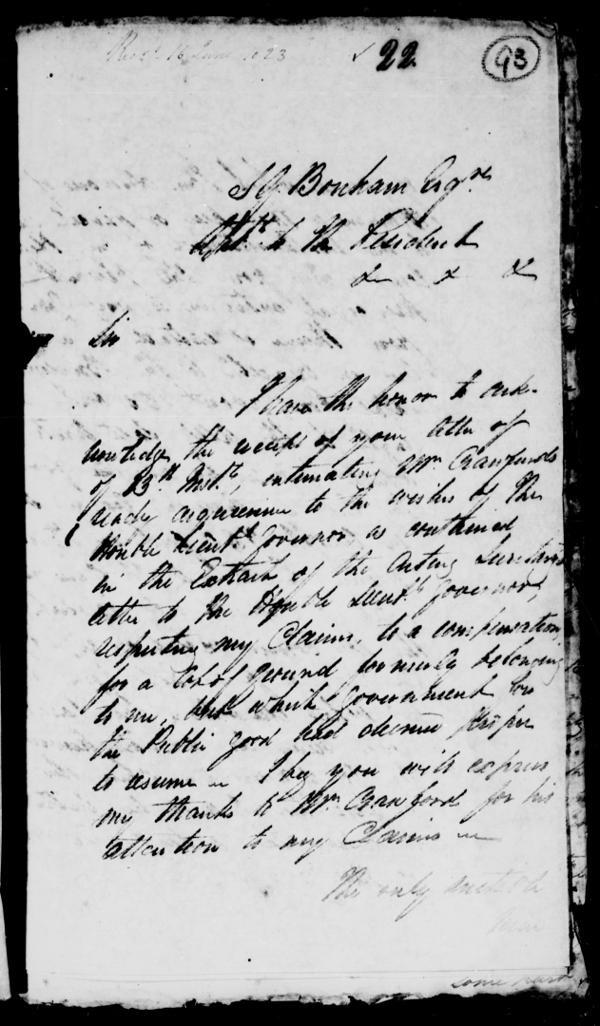 Recd 16 June 1823
22
93
S G Bonham Esqre
Asst. to the Resident
& & &
Sir
I have the honor to ack-
nowledge the receipt of your letter of
of 13th Inst., intimating Mr. Crawfurds
ready acquiescence to the wishes of the
Honble Lieut. Governor as contained
in the Extract of the Acting Secretarys
letter to the Honble Lieut. Governor,
respecting my Claims, to a compensation
for a Lot of ground formerly belonging
to me, but which Government for
the Public good had deemed proper
to resume ~ I beg you will express
my thanks to Mr. Crawford for his
attention to my Claims ~
The only method
now
some